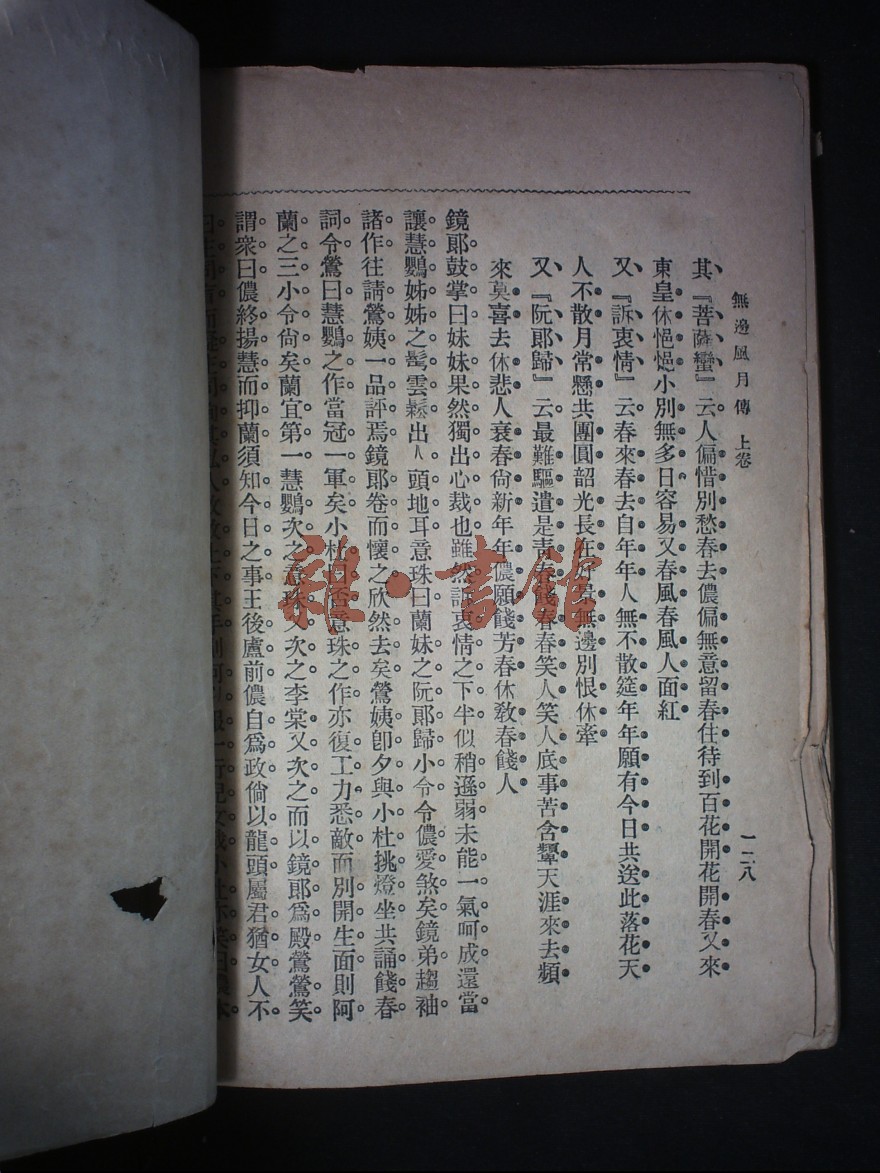 無邊風月傳 上卷
一二八
其『菩薩蠻』云人偏惜別愁春去儂偏無意留春住待到百花開花開春又來
東皇休悒悒小別無多日容易又春風春風人面紅
又『訴衷情』云春來春去自年年人無不散筵年年願有今日共送此落花天
人不散月常懸共團圓韶光長在好景無邊別恨休牽
又『阮郞歸』云最難驅遣是靑春餞春春笑人笑人底事苦含顰天涯來去頻
來莫喜去休悲人衰春尙新年年儂願餞芳春休敎春餞人
鏡郞鼓掌曰妹妹果然獨出心裁也雖然訴衷情之下半似稍遜弱未能一氣呵成還當
讓慧鸚姊姊之髩雲鬆出人頭地耳意珠曰蘭妹之阮郞歸小令令儂愛煞矣鏡弟趨袖
諸作往請鶯姨一品評焉鏡郞卷而懷之欣然去矣鶯姨卽夕與小杜挑燈坐共誦餞春
詞令鶯曰慧鸚之作當冠一軍矣小杜曰否意珠之作亦復工力悉敵而別開生面則阿
蘭之三小令尙矣蘭宜第一慧鸚次之意珠又次之李棠又次之而以鏡郞爲殿鶯鶯笑
謂衆曰儂終揚慧而抑蘭須知今日之事王後盧前儂自爲政倘以龍頭屬君猶女人不
雜·書館